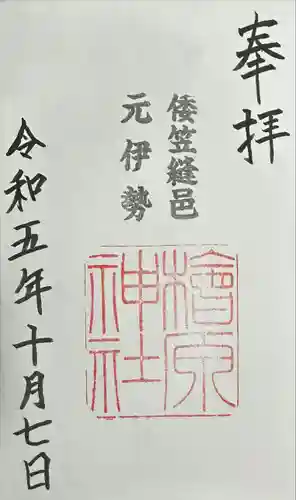 奉拝
倭笠縫邑
元伊勢
檜原神社
令和五年十月七日